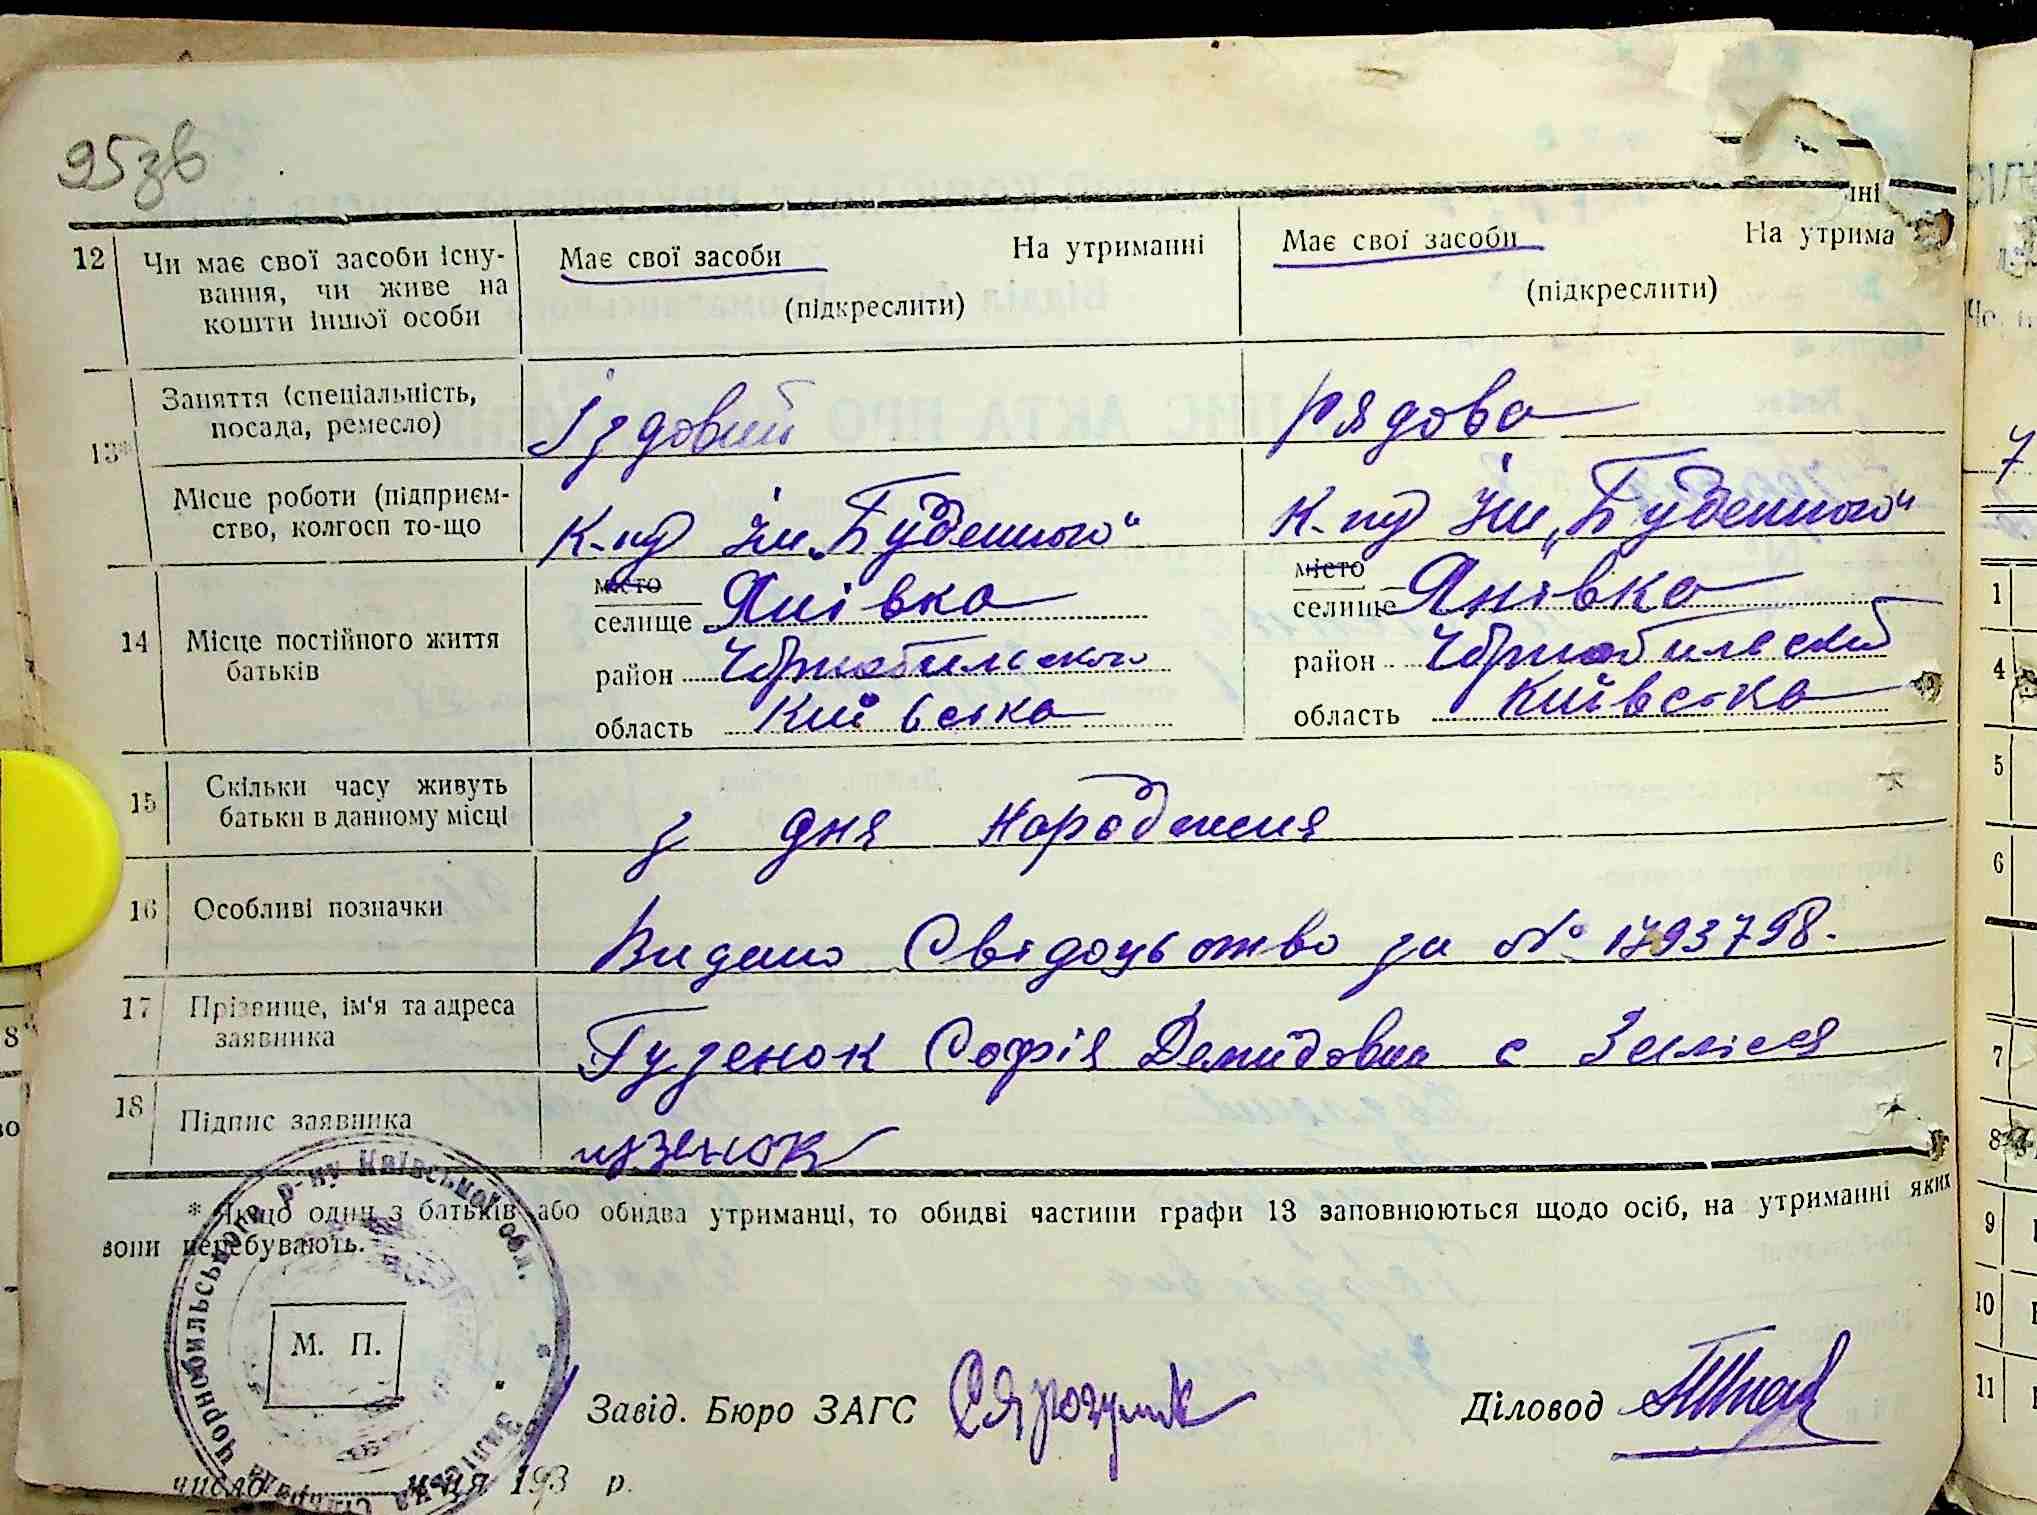 95зв
12 Чи має свої засоби існу-
вання, чи живе на
кошти іншої особи
Має свої засоби На утриманні
(підкреслити)
нні
Має свої засоби На утрима
(підкреслити)
13* Заняття (спеціальність,
посада, ремесло)
Їздовий
Рядова
Місце роботи (підприєм-
ство, колгосп то-що
К-пу ім. „Буденного"
К-пу ім. „Буденного"
14 Місце постійного життя
батьків
місто
селище Янівка
район Чорнобильского
область Київська
місто
селище Янівка
район Чорнобильский
область Київська
15 Скільки часу живуть
батьки в данному місці
з дня народження
16 Особливі позначки
Видано Свідоцьтво за № 1793798.
17 Прізвище, ім'я та адреса
заявника
Гузенок Софія Демидовна с Залісся
18 Підпис заявника
узенок
* Якщо один з батьків або обидва утриманці, то обидві частини графи 13 заповнюються щодо осіб, на утриманні яких
вони перебувають.
Чорнобильського р-ну Київської обл.
М. П.
Завід. Бюро ЗАГС Діловод
число 193 р.
1
4
5
6
7
8
9
10
11